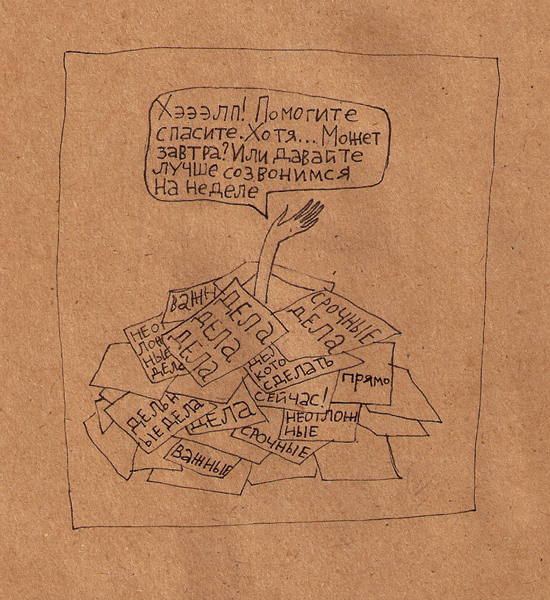 Хэээлп! Помогите
спасите. Хотя... Может
завтра? Или давайте
лучше созвонимся
на неделе
важн
дела
дела
дела
срочные
дела
нео
лож
ные
дела
дел
кото
сделать
сейчас!
прямо
дельн
ые дела
дела
неотлож
ные
срочные
важные